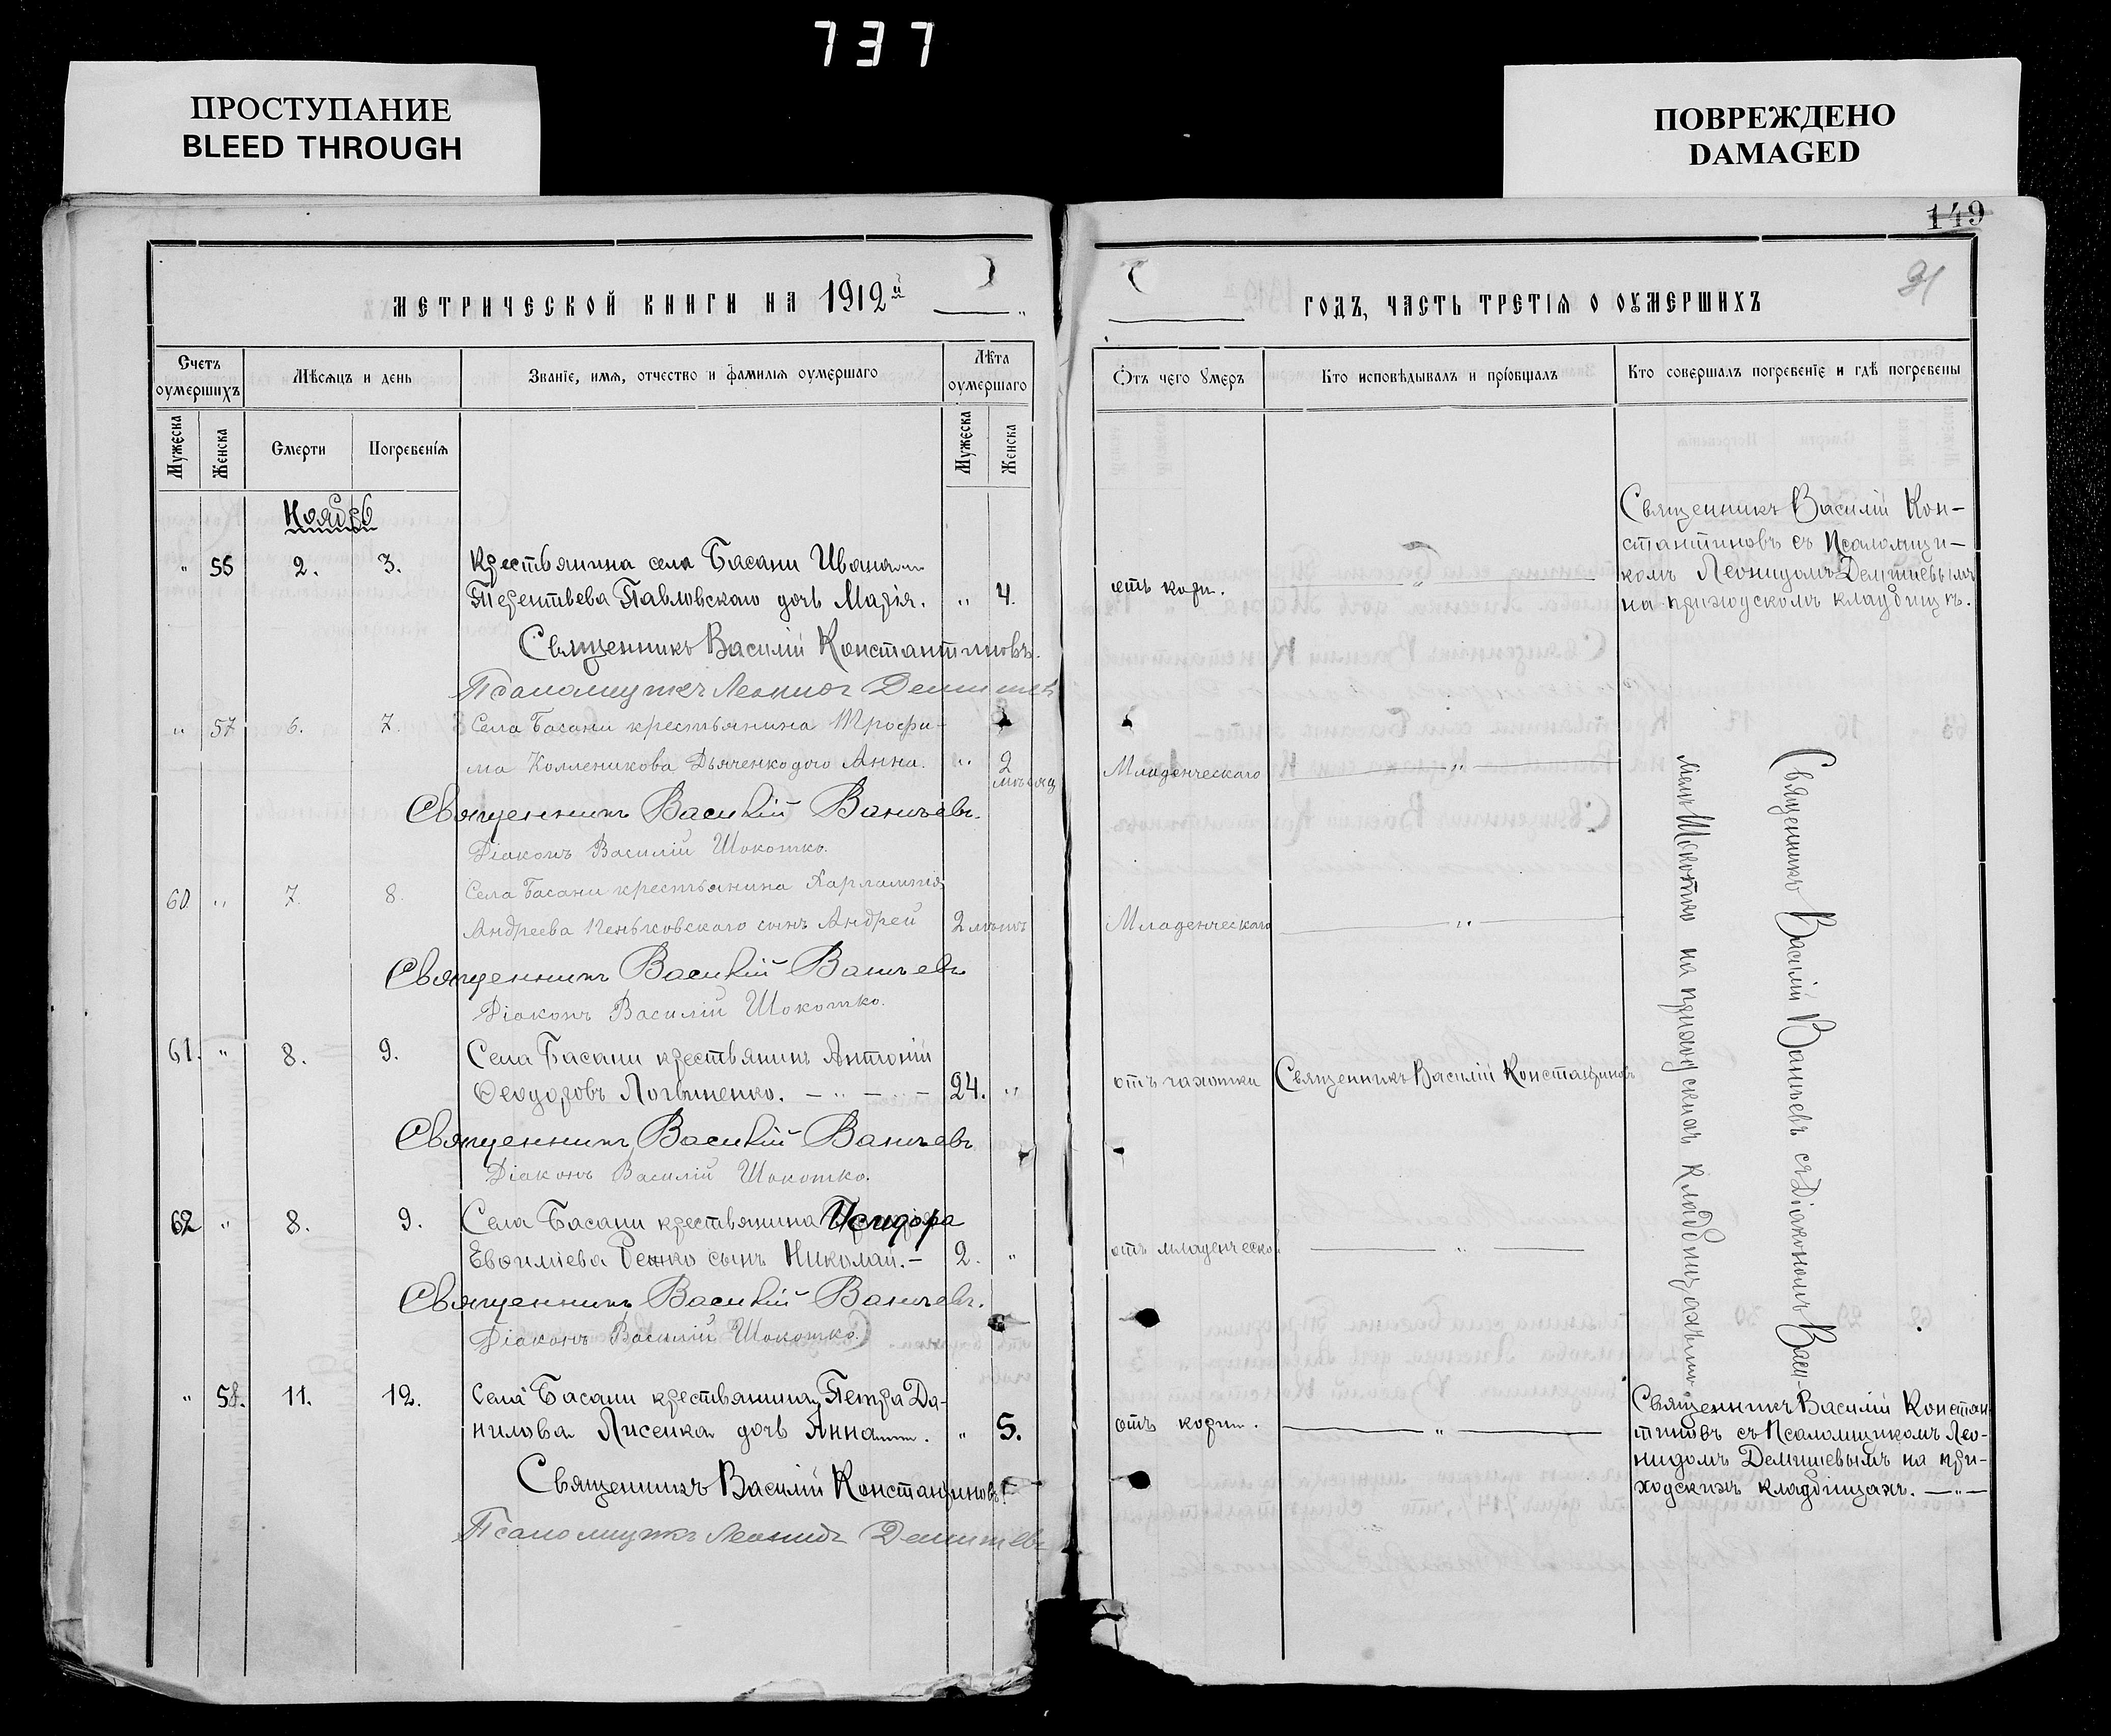 737
ПРОСТУПАНИЕ
BLEED THROUGH
ПОВРЕЖДЕНО
DAMAGED
149
31
МЕТРИЧЕСКОЙ КНИГИ НА 1912й
ГОДЪ, ЧАСТЬ ТРЕТІЯ О ОУМЕРШИХЪ
Счетъ оумершихъ
Мѣсяцъ и день
Званіе, имя, отчество и фамилія оумершаго
Лѣта оумершаго
Отъ чего умеръ
Кто исповѣдывалъ и пріобщалъ
Кто совершалъ погребеніе и гдѣ погребены
Мужеска
Женска
Смерти
Погребенія
Мужеска
Женска
Ноябрь
" 56 2. 3. Крестьянина села Басани Ивана
Терентьева Павловскаго дочь Марія. " 4. отъ кори. "
Священникъ Василій Кон-
стантиновъ съ Псаломщи-
комъ Леонидомъ Демишевымъ
на приходскомъ кладбищѣ.
Священникъ Василій Константиновъ.
Псаломщикъ Леонидъ Демишев
" 57 6. 7. Села Басани крестьянина Трофи-
ма Дьяченко дочь Анна. " 2 мѣсяц Младенческаго "
Священникъ Василій Ваньевъ.
Діаконъ Василій Шокотко.
60. " 7. 8. Села Басани крестьянина Харлампія
Андреева Пеньковскаго сынъ Андрей 2 Младенческаго "
Священникъ Василій Ваньевъ
Діаконъ Василій Шокотко.
61. " 8. 9. Села Басани крестьянинъ Антоній
Феодоровъ Логвиненко. 24. " отъ чахотки Священникъ Василій Константиновъ
Священникъ Василій Ваньевъ
Діаконъ Василій Шокотко.
62 " 8. 9. Села Басани крестьянина Исидора
сынъ Николай. 2. " отъ младенческо. "
Священникъ Василій Ваньевъ.
Діаконъ Василій Шокотко.
Священникъ Василій Ваньевъ съ Діакономъ Васи-
ліемъ Шокотко на приходскихъ кладбищахъ.
" 58. 11. 12. Села Басани крестьянина Петра Да-
нилова Лисенка дочь Анна. " 5. отъ кори. "
Священникъ Василій Констан
тиновъ съ Псаломщикомъ Лео-
нидомъ Демишевымъ на при-
ходскихъ кладбищахъ.
Священникъ Василій Константиновъ.
Псаломщикъ Леонидъ Демишевъ